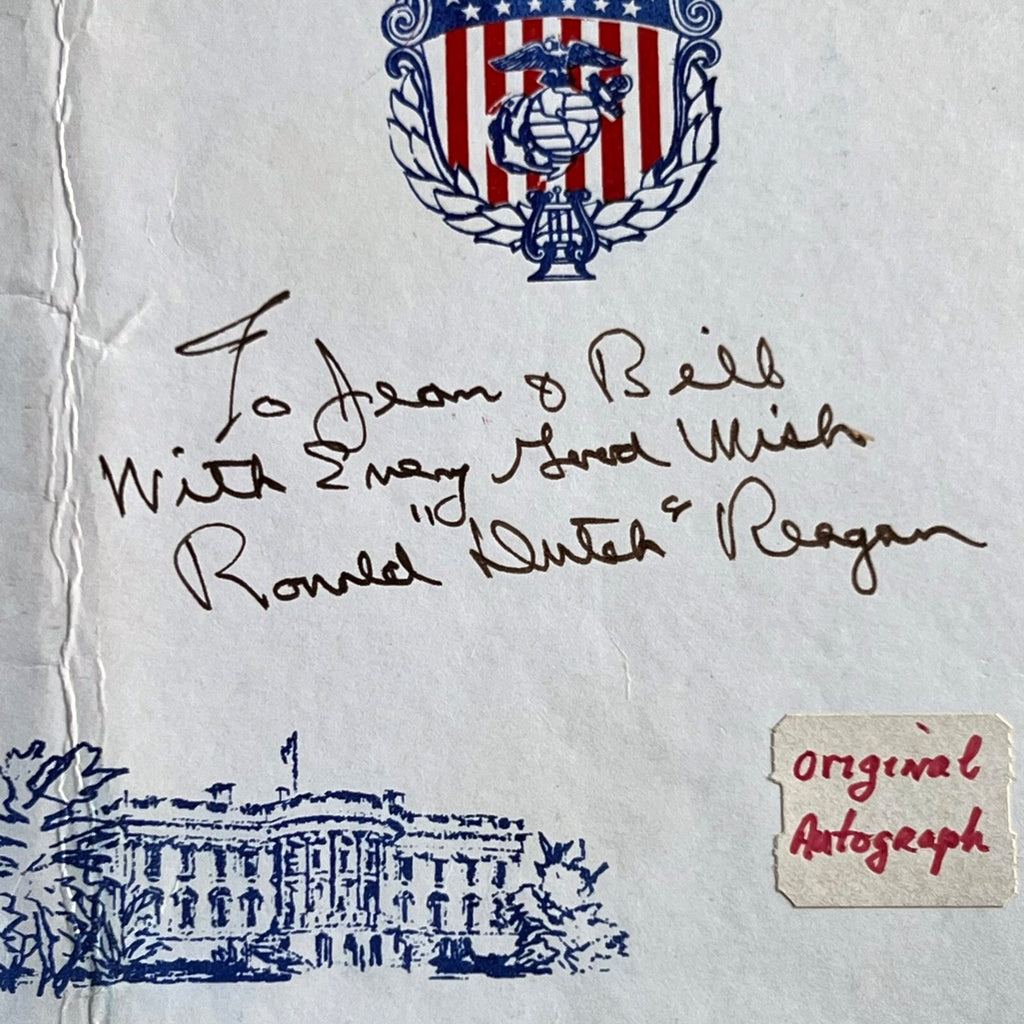 To Jean & Bill
With Every Good Wish
Ronald "Dutch" Reagan
Original
Autograph